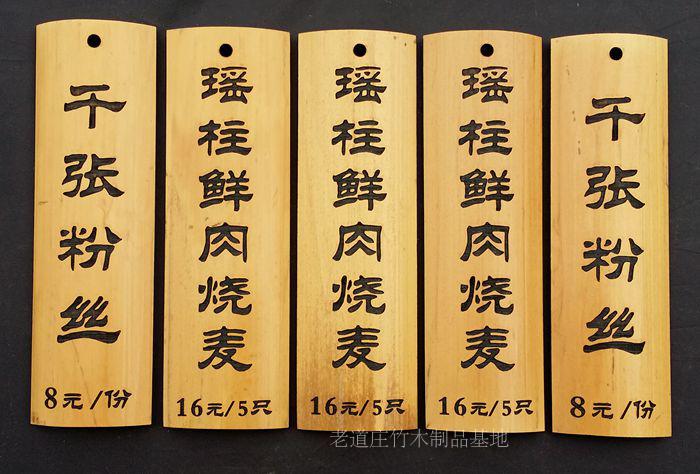 千张粉丝
8元/份
瑶柱鲜肉烧麦
16元/5只
瑶柱鲜肉烧麦
16元/5只
瑶柱鲜肉烧麦
16元/5只
千张粉丝
8元/份
老道庄竹木制品基地